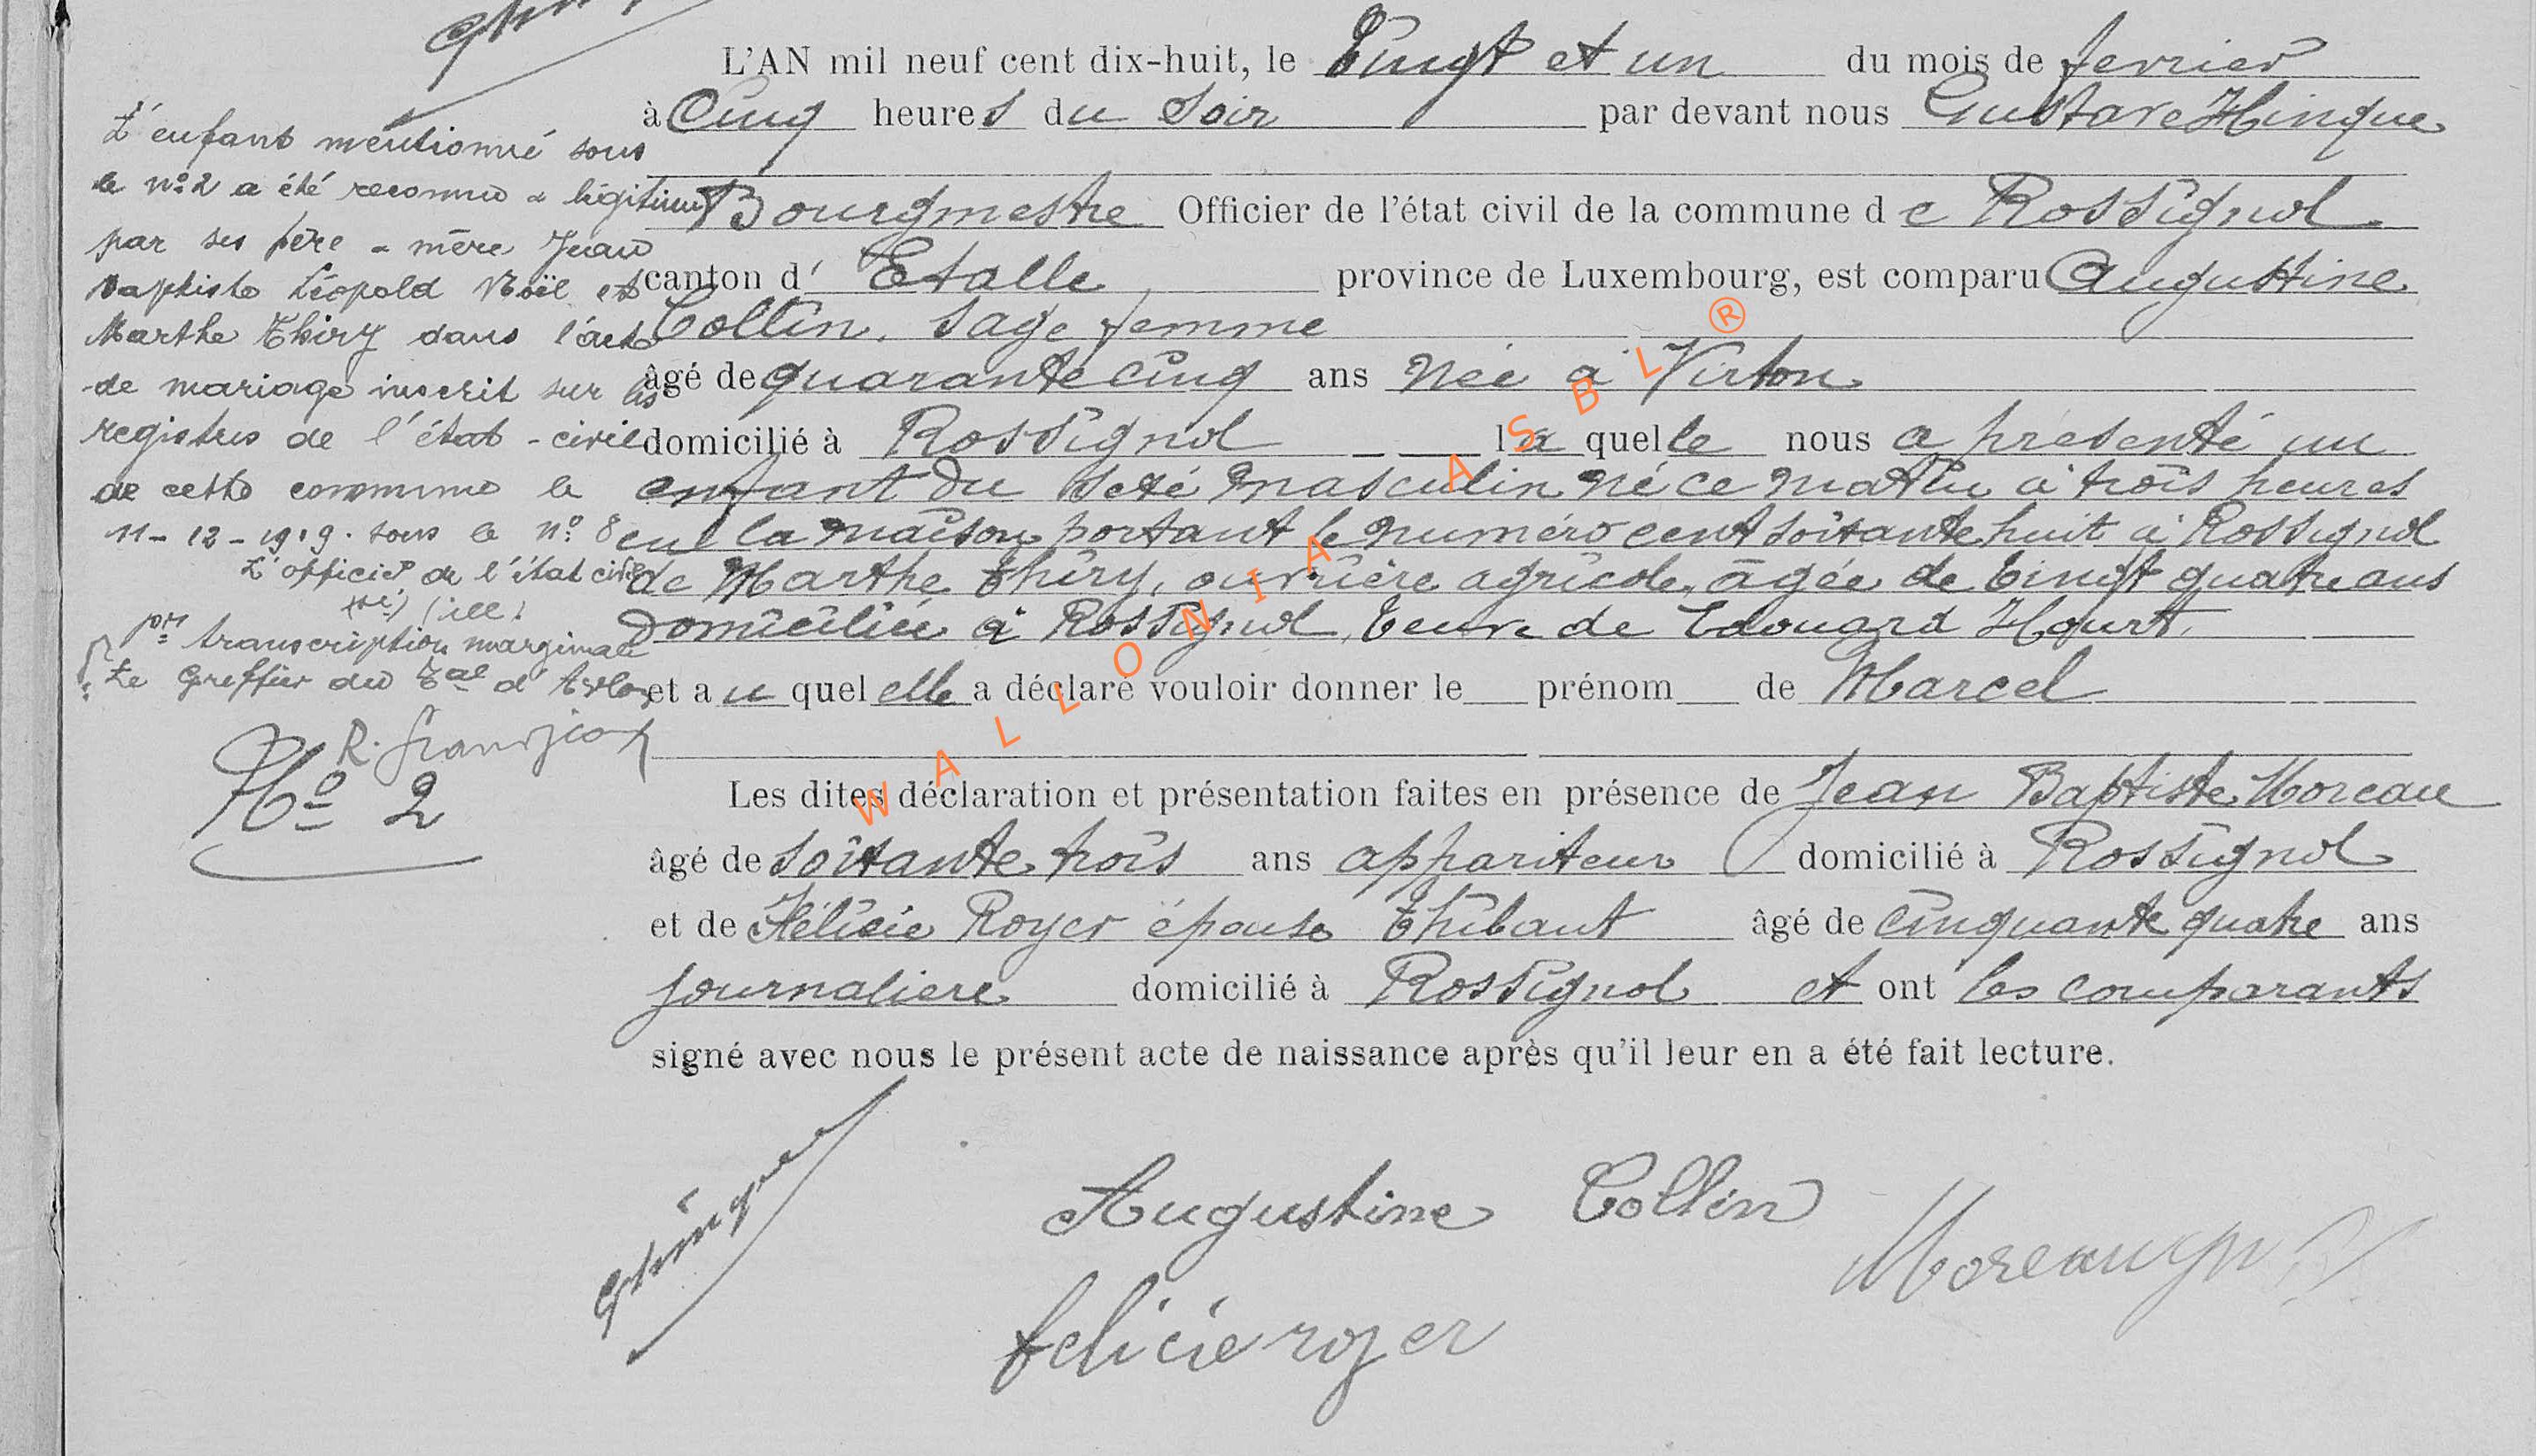 L'AN mil neuf cent dix-huit, le Vingt et un du mois de fevrier
à Cinq heures du Soir par devant nous Gustave Hinque
Bourgmestre Officier de l'état civil de la commune de Rossignol
canton d' Etalle province de Luxembourg, est comparu Augustine
Collin, sage femme
âgé de quarante cinq ans Née à Virton
domicilié à Rossignol laquelle nous a présenté un
enfant du sexe masculin né ce matin à trois heures
en la maison portant le numéro cent soixante huit à Rossignol
de Marthe Thiry, ouvrière agricole, âgée de Vingt quatre ans
Domiciliée à Rossignol, Veuve de Edouard Hourt,
et au quel elle a déclaré vouloir donner le prénom de Marcel
Les dites déclaration et présentation faites en présence de Jean Baptiste Moreau
âgé de soixante trois ans appariteur domicilié à Rossignol
et de Félicie Royer épouse Thibaut âgé de cinquante quatre ans
journaliere domicilié à Rossignol et ont les comparants
signé avec nous le présent acte de naissance après qu'il leur en a été fait lecture.
L'enfant mentionné sous
le n° 2 a été reconnu & légitimé
par ses père & mère Jean
Baptiste Léopold Noël et
Marthe Thiry dans l'acte
de mariage inscrit sur les
registres de l'état-civil
de cette commune le
11-12-1919. sous le n° 8
L'officier de l'état civil
(sé) (ill.)
pr transcription marginale
Le Greffier du Tal d'Arlon
R. Grandjean
No 2
GHinque
Augustine Collin
Moreau
felicie royer
WALLONIA ASBL ®